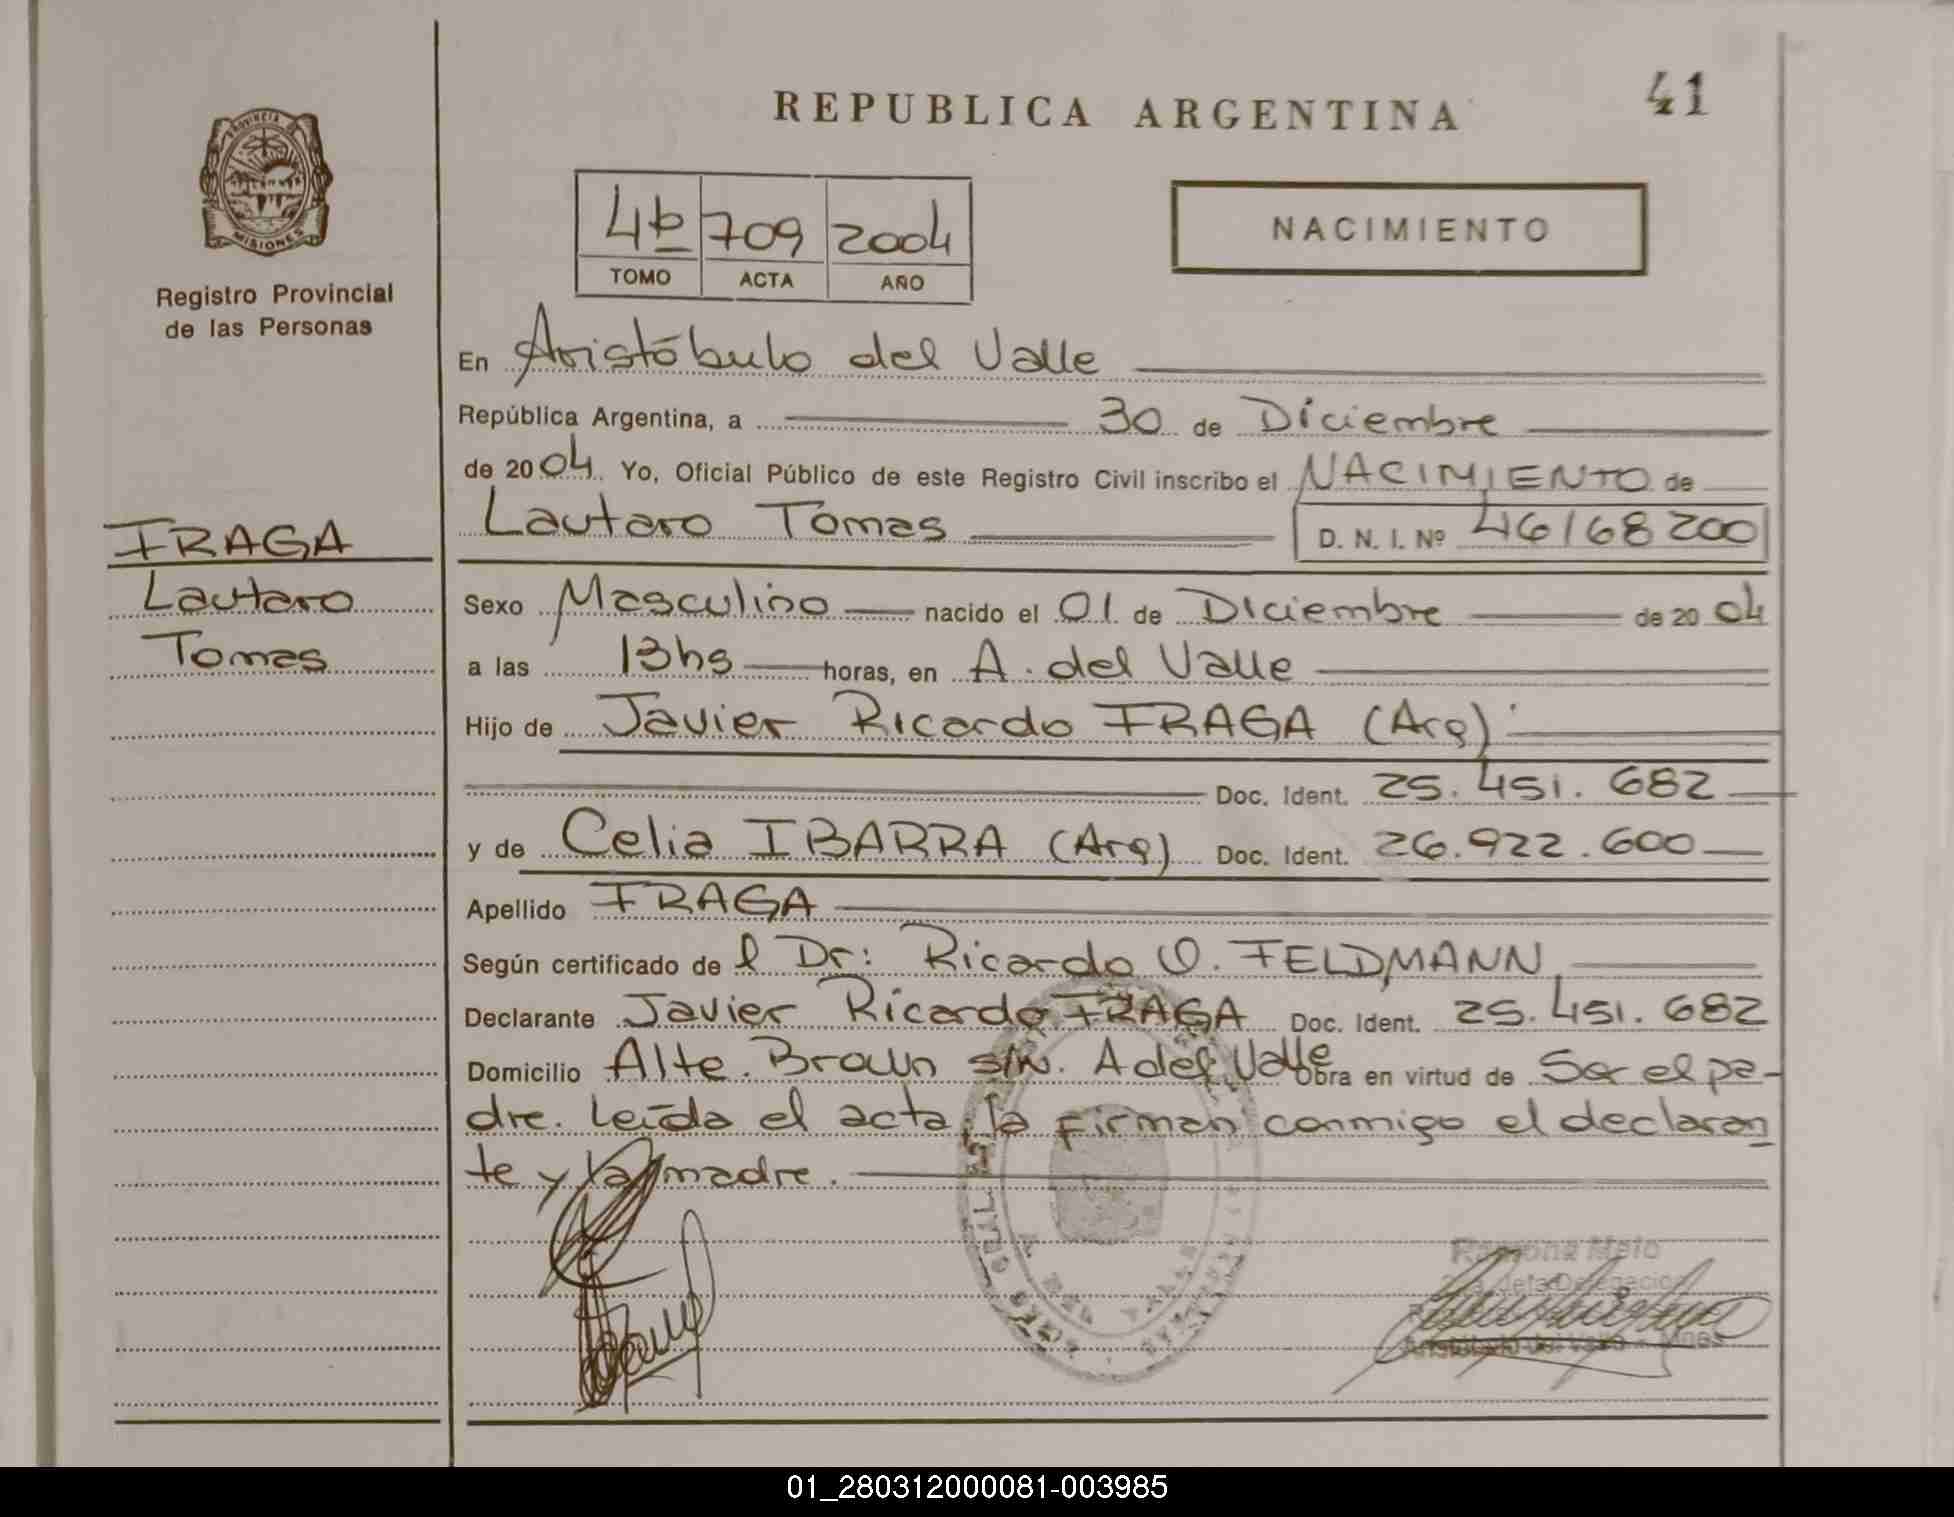 41
REPUBLICA ARGENTINA
PROVINCIA
MISIONES
Registro Provincial
de las Personas
4b 709 2004
TOMO ACTA AÑO
NACIMIENTO
En Aristóbulo del Valle
República Argentina, a 30 de Diciembre
de 2004. Yo, Oficial Público de este Registro Civil inscribo el NACIMIENTO de
Lautaro Tomas D. N. I. Nº 46168200
FRAGA
Lautaro
Tomas
Sexo Masculino nacido el 01 de Diciembre de 2004
a las 13hs horas, en A. del Valle
Hijo de Javier Ricardo FRAGA (Arg)
Doc. Ident. 25.451.682
y de Celia IBARRA (Arg) Doc. Ident. 26.922.600
Apellido FRAGA
Según certificado de l Dr: Ricardo O. FELDMANN
Declarante Javier Ricardo FRAGA Doc. Ident. 25.451.682
Domicilio Alte. Brown s/N. A del Valle Obra en virtud de Ser el pa-
dre. Leída el acta, la firman conmigo el declaran
te y la madre.
Ramona Melo
Jefa Delegacion
Aristóbulo del Valle - Mnes
01_280312000081-003985